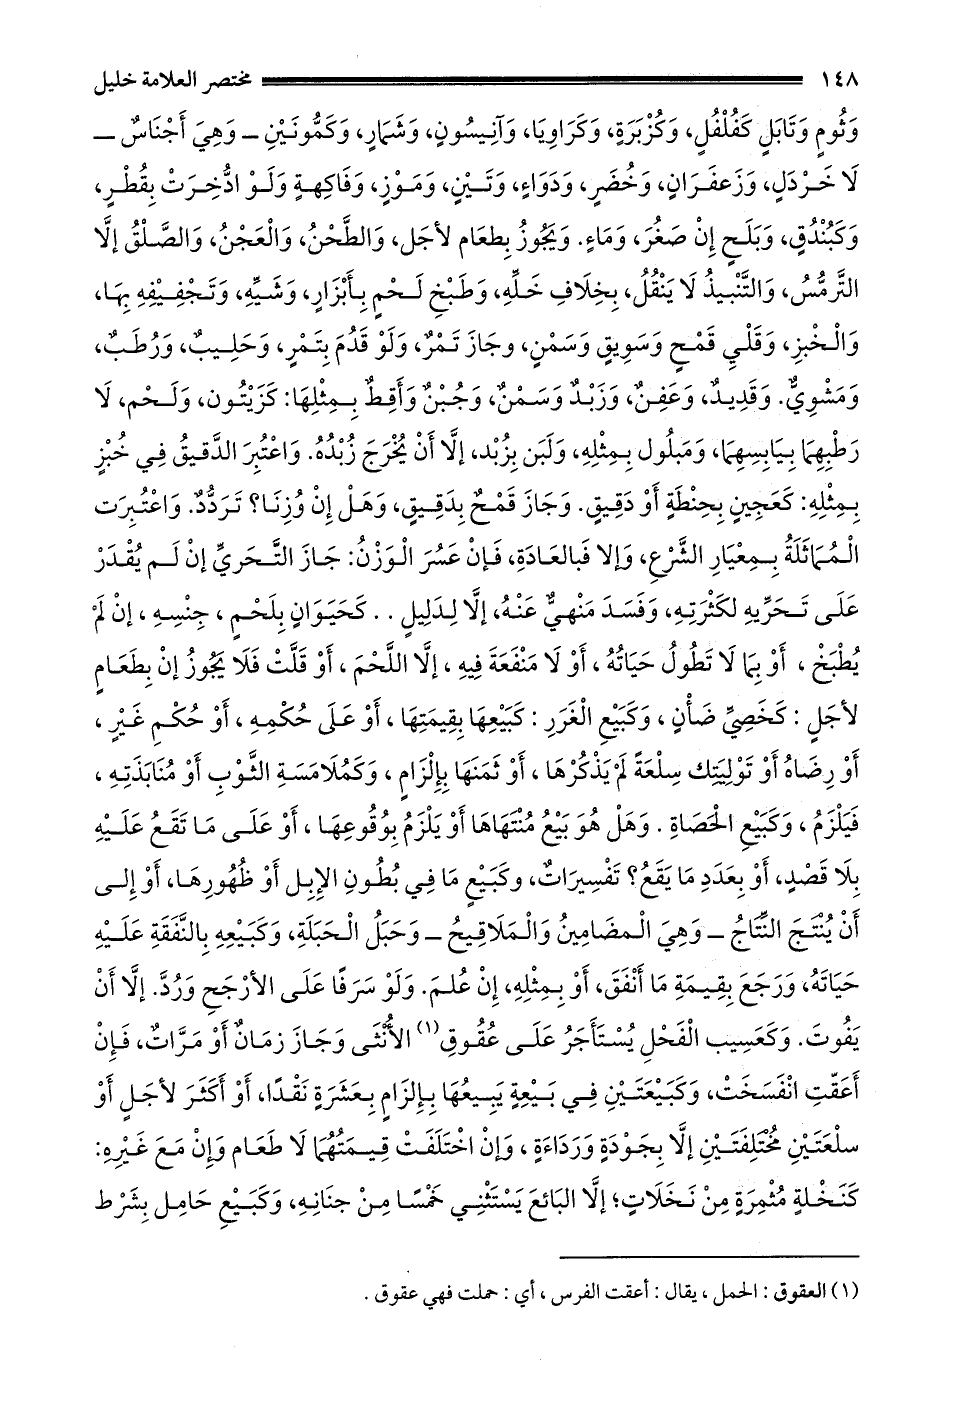 ١٤٨ مختصر العلامة خليل
وَثُومٍ وَتَابَلٍ كَفُلْفُلٍ، وَكُزْبَرَةٍ، وَكَرَاوِيَا، وَآنِيسُونٍ، وَشَمَارٍ، وَكَمُّونَيْنِ ـ وَهِيَ أَجْنَاسٌ ـ
لَا خَرْدَلٍ، وَزَعفَرَانٍ، وَخُضَرٍ، وَدَوَاءٍ، وَتَيْنٍ، وَمَوْزٍ، وَفَاكِهةٍ وَلَوْ ادُّخِرَتْ بِقُطْرٍ،
وَكَبُنْدُقٍ، وَبَلَحٍ إِنْ صَغُرَ، وَمَاءٍ. وَيَجُوزُ بِطعَامٍ لأجَلٍ، وَالطَّحْنُ، وَالْعَجْنُ، وَالصَّلْقُ إلَّا
التَّرمُسُ، وَالتَّنْبِيذُ لَا يَنْقُلُ، بِخِلَافِ خَلِّهِ، وَطَبْخِ لَحْمٍ بِأَبْزَارٍ، وَشَيِّهِ، وَتَجْفِيْفِهِ بِهَا،
وَالْخبْزِ، وَقَلْيِ قَمْحٍ وَسَوِيقٍ وَسَمْنٍ، وجَازَ تَمْرٌ، وَلَوْ قَدُمَ بِتَمْرٍ، وَحَلِيبٌ، وَرُطَبٌ،
وَمَشْوِيٌّ. وَقَدِيدٌ، وَعَفِنٌ، وَزَبْدٌ وَسَمْنٌ، وَجُبْنٌ وَأَقِطٌ بِمِثْلِهَا: كَزَيْتُونٍ، وَلَحْمٍ، لَا
رَطْبِهِمَا بِيَابِسِهِمَا، وَمَبلُولٍ بِمِثْلِهِ، وَلَبَنٍ بِزُبْد، إلَّا أَنْ يُخْرَجَ زُبْدُهُ. وَاعْتُبِرَ الدَّقيقُ فِي خُبْزٍ
بِمِثْلِهِ: كَعَجِينٍ بِحِنطَةٍ أَوْ دَقِيقٍ. وَجَازَ قَمْحٌ بِدَقِيقٍ، وَهَلْ إنْ وُزِنَا؟ تَرَدُّدٌ. وَاعْتُبِرَت
الْمُمَاثَلَةُ بِمِعْيَارِ الشَّرْعِ، وَإلا فَبالعَادَةِ، فَإنْ عَسُرَ الْوَزْنُ: جَازَ التَّحَرِيِّ إنْ لَم يُقْدَرْ
عَلَى تَحَرِّيهِ لكَثْرَتِهِ، وَفَسَدَ مَنْهِيٌّ عَنْهُ، إلَّا لِدَلِيلٍ . . كَحَيَوَانٍ بِلَحْمٍ ، جِنْسِهِ ، إن لَمْ
يُطْبَخْ ، أَوْ بِمَا لَا تَطُولُ حَيَاتُهُ ، أَوْ لَا مَنْفَعَةَ فِيهِ ، إلَّا اللَّحْمَ ، أَوْ قَلَّتْ فَلَا يَجُوزُ إنْ بِطَعَامٍ
لأجَلٍ : كَخَصِيِّ ضَأْنٍ ، وَكَبَيْعِ الْغَرَرِ : كَبَيْعِهَا بِقِيمَتِهَا ، أَوْ عَلَى حُكْمِهِ ، أَوْ حُكْمِ غَيْرٍ ،
أَوْ رِضَاهُ أَوْ تَوْلِيَتِك سِلْعَةً لَمْ يَذْكُرْهَا ، أَوْ ثَمَنَهَا بِإلْزَامٍ ، وَكَمُلَامَسَةِ الثَّوْبِ أَوْ مُنَابَذَتِهِ ،
فَيَلْزَمُ ، وَكَبَيْعِ الْحَصَاةِ . وَهَلْ هُوَ بَيْعُ مُنْتَهَاهَا أَوْ يَلْزَمُ بِوُقُوعِهَا ، أَوْ عَلَى مَا تَقَعُ عَلَيْهِ
بِلَا قَصْدٍ، أَوْ بِعَدَدِ مَا يَقَعُ؟ تَفْسِيرَاتٌ، وَكَبَيْعِ مَا فِي بُطُونِ الإِبِلِ أَوْ ظُهُورِهَا، أَوْ إلى
أَنْ يُنْتَجَ النِّتَاجُ ـ وَهِيَ الْمضَامِينُ وَالْمَلَاقِيحُ ـ وَحَبَلُ الْحبَلَةِ، وَكَبَيْعِهِ بِالنَّفَقَةِ عَلَيْهِ
حَيَاتَهُ، وَرَجَعَ بِقِيمَةِ مَا أَنْفَقَ، أَوْ بِمِثْلِهِ، إن عُلمَ. وَلَوْ سَرَفًا عَلَى الأرْجَحِ وَرُدَّ. إلَّا أَنْ
يَفُوتَ. وَكَعَسِيب الْفَحْلِ يُسْتَأجَرُ عَلَى عُقُوقِ(١) الأُنْثَى وَجَازَ زمَانٌ أَوْ مَرَّاتٌ، فَإِنْ
أَعَقّتِ انْفَسَخَتْ، وَكَبَيْعَتَيْنِ فِي بَيْعَةٍ يَبِيعُهَا بِإلزَامٍ بِعَشَرَةٍ نَقْدًا، أَوْ أَكثَرَ لأجَلٍ أَوْ
سلْعَتَيْنِ مُخْتَلِفَتَيْنِ إلَّا بِجَوْدَةٍ وَرَدَاءَةٍ ، وَإنْ اخْتَلَفَتْ قِيمَتُهُمَا لَا طَعَامٍ وَإنْ مَعَ غَيْرِهِ:
كَنَخْلَةٍ مُثْمِرَةٍ مِنْ نَخَلَاتٍ؛ إلَّا البَائعَ يَسْتَثْنِي خَمْسًا مِنْ جنَانِهِ، وَكَبَيْعِ حَامِلٍ بِشَرْط
(١) العقوق : الحمل ، يقال : أعقت الفرس ، أي : حملت فهي عقوق .